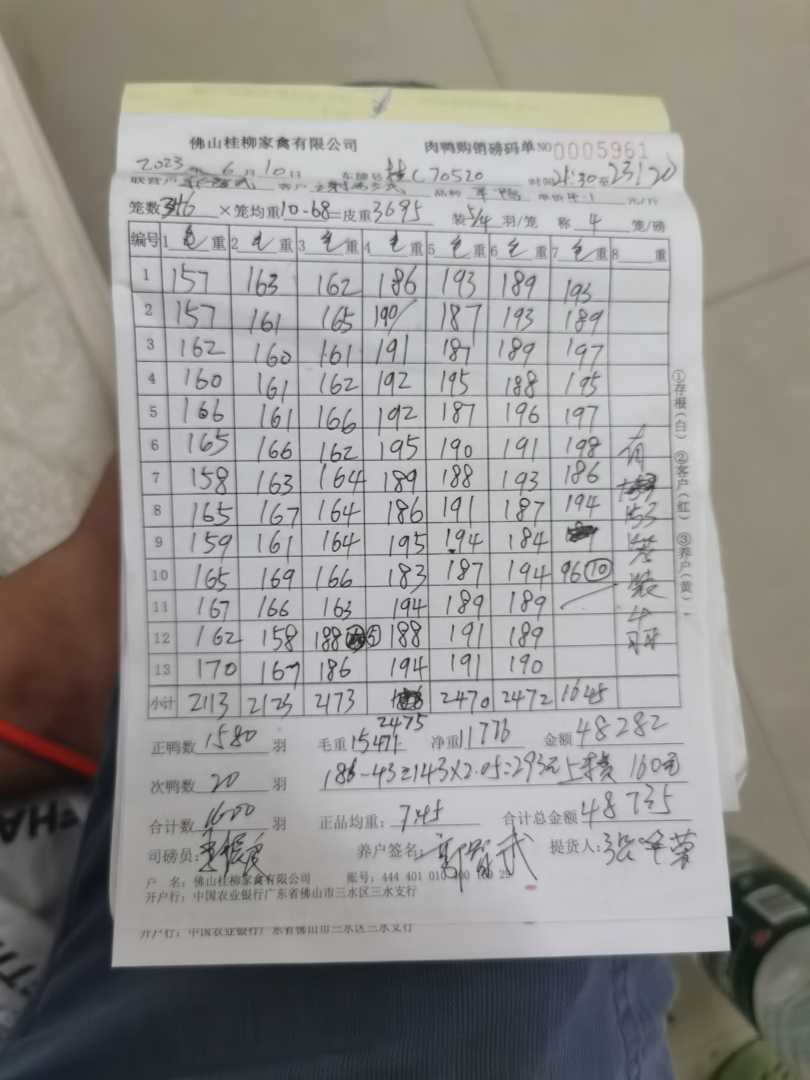 佛山桂柳家禽有限公司 肉鸭购销磅码单 NO 0005961
2023年6月10日 车牌号 C70520 时间21:30至23:20
联营户 客户 品种 单价 元/斤
笼数346×笼均重10.68=皮重3695 装5/4羽/笼 称4笼/磅
编号 1 毛重 2 毛重 3 毛重 4 毛重 5 毛重 6 毛重 7 毛重 8 重
1 157 163 162 186 193 189 193
2 157 161 165 190 187 193 189
3 162 160 161 191 187 189 197
4 160 161 162 192 195 188 195
5 166 161 166 192 187 196 197
6 165 166 162 195 190 191 198
7 158 163 164 189 188 193 186
8 165 167 164 186 191 187 194
9 159 161 164 195 194 184
10 165 169 166 183 187 194 96⑩
11 167 166 163 194 189 189
12 162 158 188 ⑤ 188 191 189
13 170 167 186 194 191 190
小计 2113 2123 2173 2475 2470 2472 1645
正鸭数 1580 羽 毛重 15471 净重 11776 金额 48282
次鸭数 20 羽 186-43=143×2.05=293元 160元
合计数 1600 羽 正品均重: 7.45 合计总金额 48735
司磅员: 养户签名: 提货人:
户 名: 佛山桂柳家禽有限公司 账号: 444 401 010
开户行: 中国农业银行广东省佛山市三水区三水支行
开户行: 中国农业银行广东省佛山市三水区三水支行
①存根(白) ②客户(红) ③养户(黄)